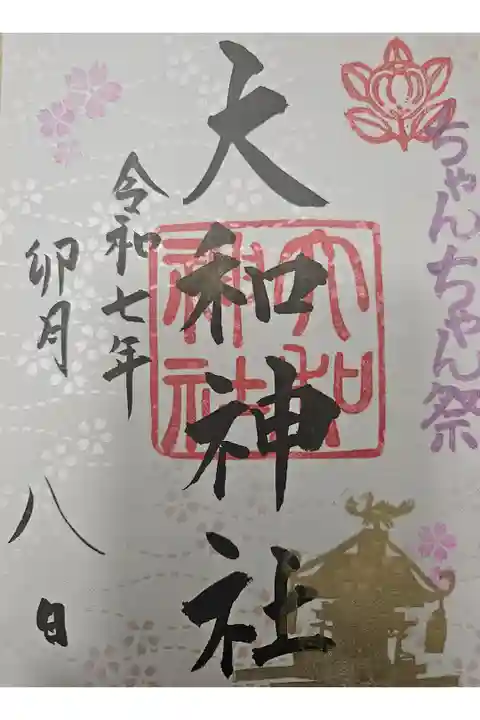 ちゃんちゃん祭
大和神社
大和
神社
令和七年
卯月
八日